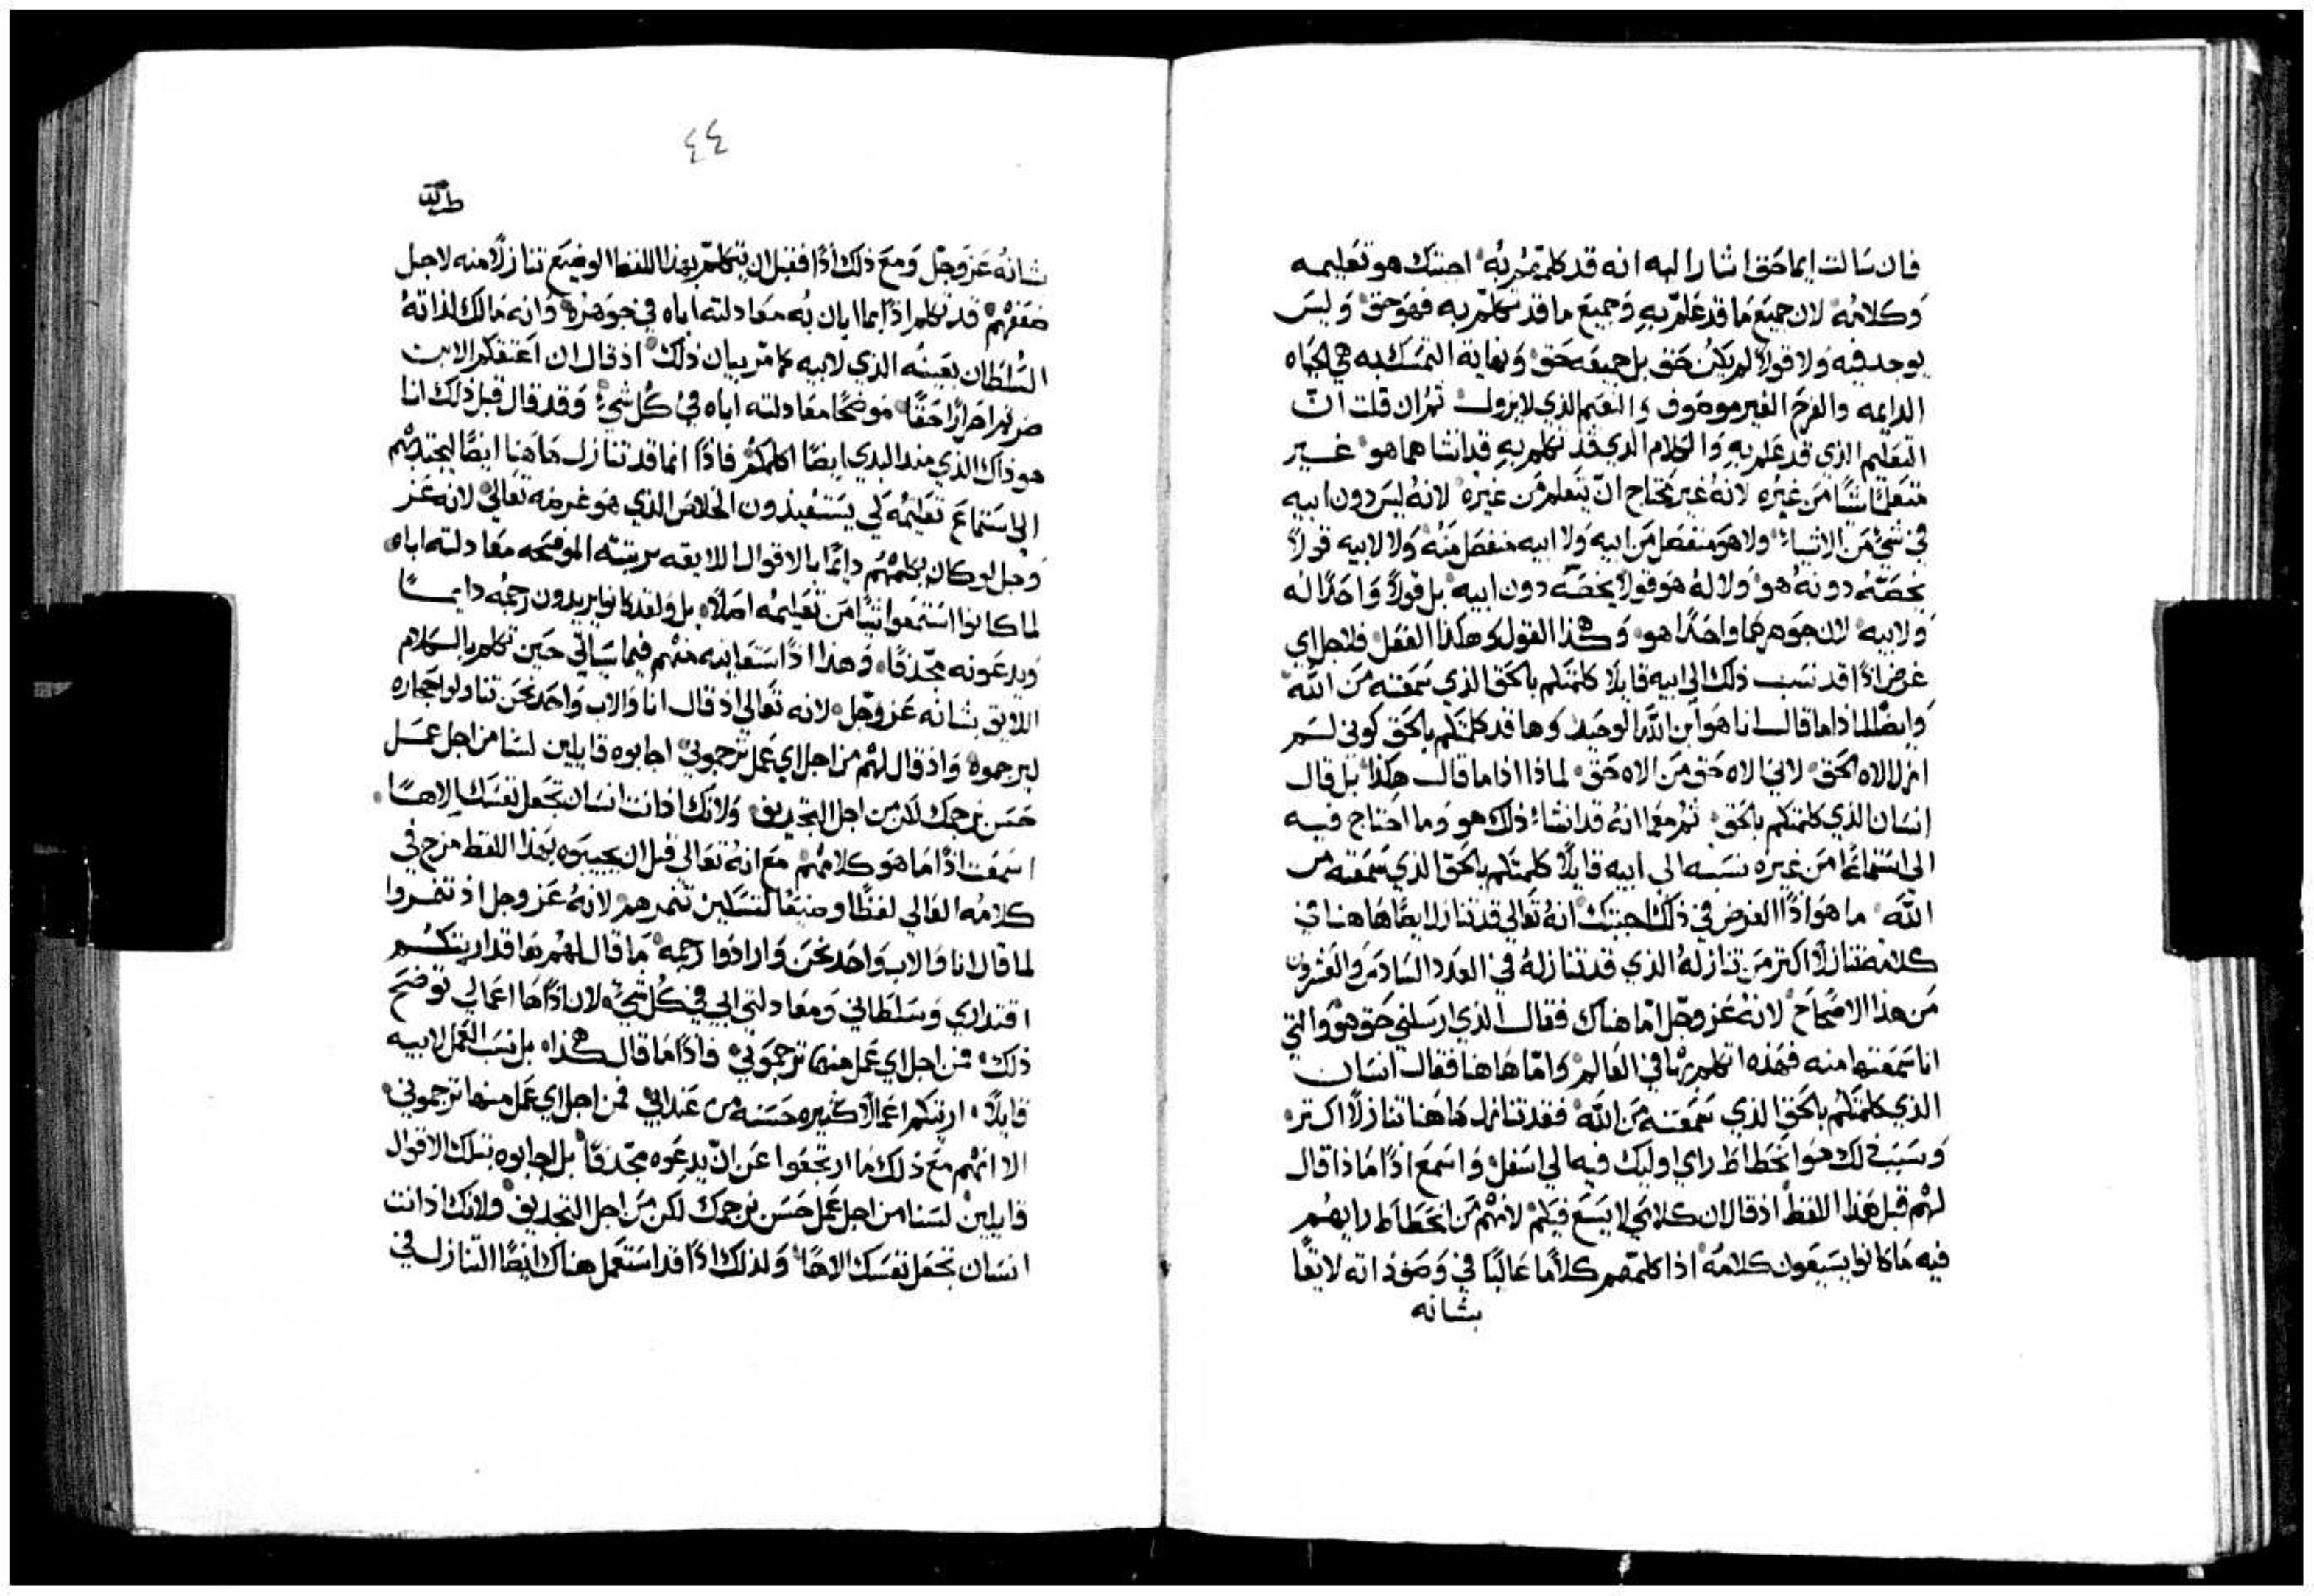 فان سالت ايما حق اشار اليه انه قد كلمهم به اجبتك هو تعليمه
وكلامه لان جميع ما قد علم به وجميع ما قد تكلم به فهو حق وليس
يوجد فيه ولا قولا لم يكن حق بل جميعه حق ونهاية التمسك به هي الحياه
الدايمه والفرح الغير موصوف والنعيم الذي لا يزول ثم ان قلت ان
التعليم الذي قد علم به والكلام الذي قد تكلم به قد انشاهما هو غير
متعلما شيا من غيره لانه غير محتاج ان يتعلم من غيره لانه ليس دون ابيه
في شي من الاشياء ولا هو منفصل من ابيه ولا ابيه منفصل منه ولا لابيه قولا
يخصه دونه هو ولا له هو قولا يخصه دون ابيه بل قولا واحدا له
ولابيه لان جوهرهما واحدا هو وهكذا القول وهكذا الفعل فلاجل اي
غرض اذا قد نسب ذلك الى ابيه قايلا كلمتكم بالحق الذي سمعته من الله
وايضا لماذا ما قال انا هو ابن الله الوحيد وها قد كلمتكم بالحق كوني لسم
ازل الاه الحق لاني الاه حق من الاه حق لماذا اذا ما قال هكذا بل قال
انسان الذي كلمتكم بالحق ثم معما انه قد انشاء ذلك هو وما احتاج فيه
الى استماعا من غيره نسبه الى ابيه قايلا كلمتكم بالحق الذي سمعته من
الله ما هو اذا الغرض في ذلك اجبتك انه تعالى قد تنازل ايضا هاهنا في
كلامه متنازلا اكثر من تنازله الذي قد تنازله في العدد السادس والعشرون
من هذا الاصحاح لانه عز وجل اما هناك فقال الذي ارسلني حق هو والتي
انا سمعتها منه فهذه اتكلم بها في العالم واما هاهنا فقال انسان
الذي كلمتكم بالحق الذي سمعته من الله فقد تنازل هاهنا تنازلا اكثر
وسبب ذلك هو انحطاط راي اوليك فيه الى اسفل واسمع اذا ماذا قال
لهم قبل هذا اللفظ اذ قال ان كلامي لا يسع فيكم لانهم من انحطاط رايهم
فيه ما كانوا يسيغون كلامه اذا كلمهم كلاما عاليا في وصف ذاته لايقا
بشانه
٤٤
شانه عز وجل ومع ذلك اذا فقبل ان يتكلم بهذا اللفظ الوضيع تنازلا منه لاجل
ضعفهم قد تكلم اذا بما ابان به معادلته اباه في جوهره وانه مالك لذاته
السلطان بعينه الذي لابيه كما مر بيان ذلك اذ قال ان اعتقكم الابن
صرتم احرارا حقا موضحا معادلته اباه في كل شي وقد قال قبل ذلك انا
هو ذاك الذي منذ البدي ايضا اكلمكم فاذا انما قد تنازل هاهنا ايضا ليجتذبهم
الى استماع تعليمه لكي يستفيدون الخلاص الذي هو غرضه تعالى لانه عز
وجل لو كان يكلمهم دايما بالاقوال اللايقه برتبته الموضحه معادلته اباه
لما كانوا استمعوا شيا من تعليمه اصلا بل ولقد كانوا يريدون رجمه دايما
ويدعونه مجدفا وهذا اذا ستعاينه منهم فيما سياتي حين تكلم بالكلام
اللايق بشانه عز وجل لانه تعالى اذ قال انا والاب واحد نحن تناولوا حجاره
ليرجموه واذ قال لهم من اجل اي عمل ترجموني اجابوه قايلين لسنا من اجل عمل
حسن نرجمك لكن من اجل التجديف ولانك اذ انت انسان تجعل نفسك الاها
اسمعت اذا ما هو كلامهم مع انه تعالى قبل ان يجيبوه بهذا اللفظ مزج في
كلامه العالي لفظا وضيعا لتسكين تنمرهم لانه عز وجل اذ تنمروا
لما قال انا والاب واحد نحن وارادوا رجمه ما قال لهم ها قد اريتكم
اقتداري وسلطاني ومعادلتي ابي في كل شي لان اذا ها اعمالي توضح
ذلك فمن اجل اي عمل منها ترجموني فاذا ما قال هكذا بل نسب العمل لابيه
قايلا اريتكم اعمالا كثيره حسنه من عند ابي فمن اجل اي عمل منها ترجموني
الا انهم مع ذلك ما ارتجعوا عن ان يدعوه مجدفا بل اجابوه بتلك الاقوال
قايلين لسنا من اجل عمل حسن نرجمك لكن من اجل التجديف ولانك اذ انت
انسان تجعل نفسك الاها ولذلك اذا قد استعمل هناك ايضا التنازل في